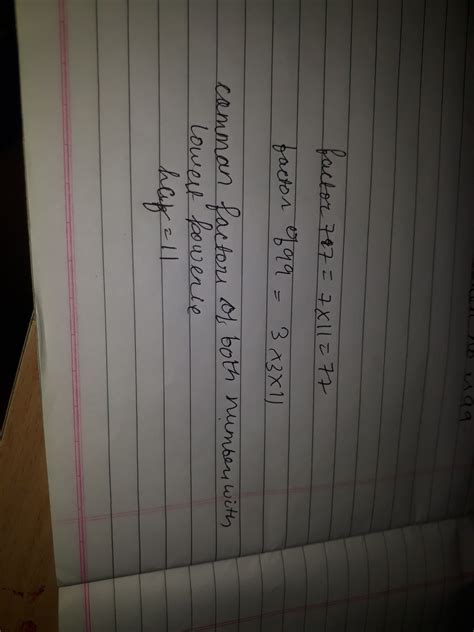 factor 77 = 7x11 = 77
factor of 99 = 3x3x11
common factors of both number with
lowest powers
hcf = 11